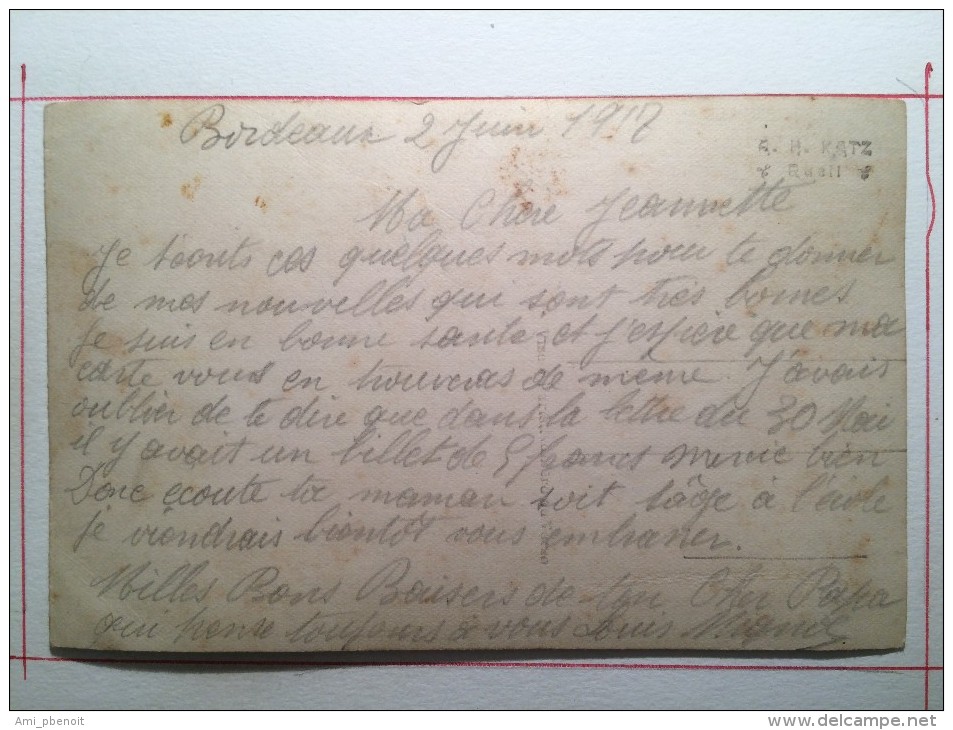 Bordeaux 2 Juin 1917
A. H. KATZ
Rueil
Ma Chere Jeannette
Je t'écrits ces quelques mots pour te donner
de mes nouvelles qui sont très bonnes
je suis en bonne sante et j'espère que ma
carte vous en trouveras de meme. J'avais
oublier de te dire que dans la lettre du 30 Mai
il y avait un billet de 5 francs bien
Donc ecoute ta maman soit sage à l'école
je viendrais bientôt vous embrasser.
Milles Bons Baisers de ton Cher Papa
qui pense toujours à vous Louis
Ami_pbenoit
www.delcampe.net